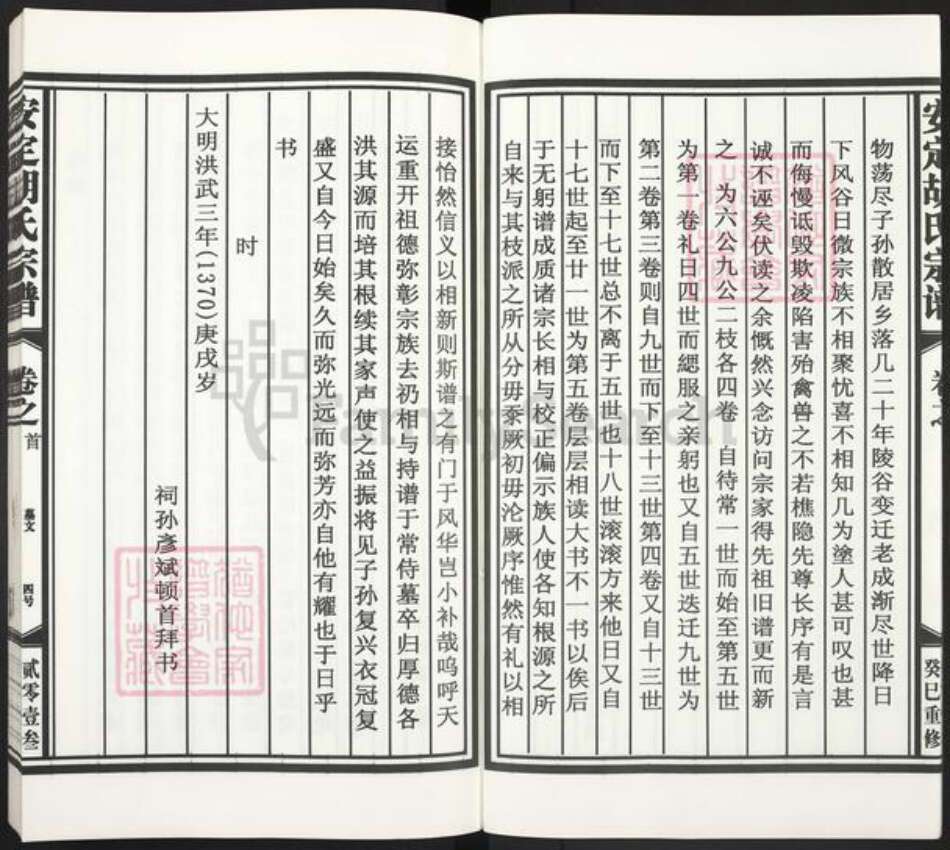 安定胡氏宗谱
卷之
癸巳重修
物荡尽子孙散居乡落几二十年陵谷变迁老成渐尽世降日
下风谷日微宗族不相聚忧喜不相知几为塗人甚可叹也甚
而侮慢诋毁欺凌陷害殆禽兽之不若樵隐先尊长序有是言
诚不诬矣伏读之余慨然兴念访问宗家得先祖旧谱更而新
之 为六公九公二枝各四卷 自待常一世而始至第五世
为第一卷礼日四世而緦服之亲躬也又自五世迭迁九世为
第二卷第三卷则自九世而下至十三世第四卷又自十三世
而下至十七世总不离于五世也十八世滚滚方来他日又自
十七世起至廿一世为第五卷层层相读大书不一书以俟后
于无躬谱成质诸宗长相与校正偏示族人使各知根源之所
自来与其枝派之所从分毋忝厥初毋沦厥序惟然有礼以相
接怡然信义以相新则斯谱之有门于风华岂小补哉呜呼天
运重开祖德弥彰宗族去礽相与持谱于常侍墓卒归厚德各
洪其源而培其根续其家声使之益振将见子孙复兴衣冠复
盛又自今日始矣久而弥光远而弥芳亦自他有耀也于日乎
书
时
大明洪武三年(1370)庚戌岁
祠孙彦斌顿首拜书
安定胡氏宗谱
卷之首
墓文
四号
贰零壹叁
FamilySearch